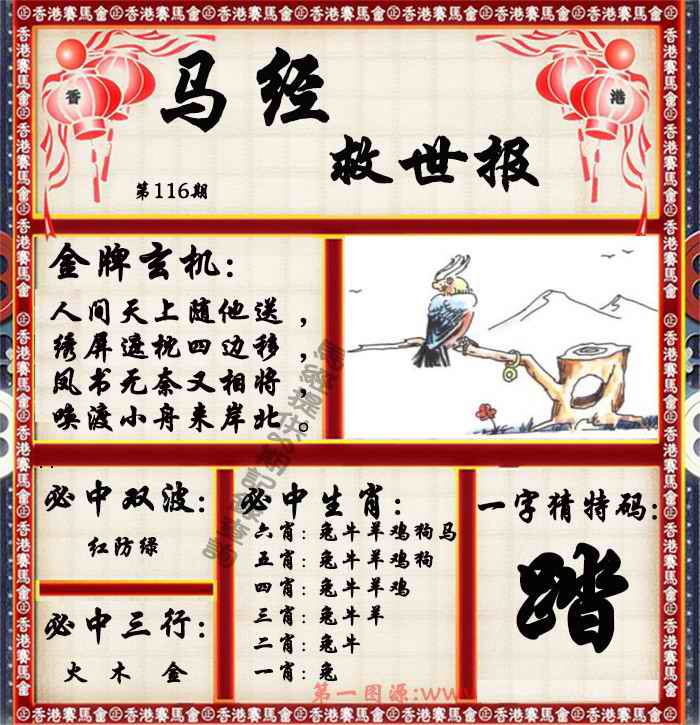 香港賽馬會
香 港
马经
救世报
第116期
金牌玄机：
人间天上随他送，
绣屏遮枕四边移，
凤书无奈又相将，
唤渡小舟来岸北。
必中双波：
红防绿
必中三行：
火 木 金
必中生肖：
六肖：兔牛羊鸡狗马
五肖：兔牛羊鸡狗
四肖：兔牛羊鸡
三肖：兔牛羊
二肖：兔牛
一肖：兔
一字猜特码：
踏
第一图源:www